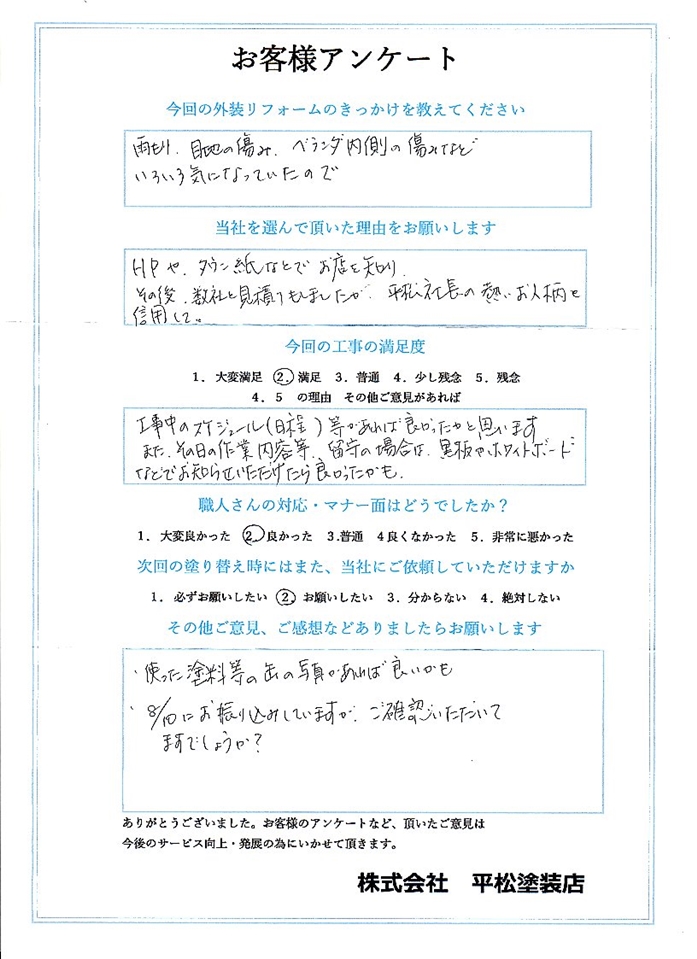 お客様アンケート
今回の外装リフォームのきっかけを教えてください
雨もり、目地の傷み、ベランダ内側の傷みなど
いろいろ気になっていたので
当社を選んで頂いた理由をお願いします
HPや、タウン紙などでお店を知り、
その後、数社と見積りもしましたが、平松社長の熱いお人柄を
信用して。
今回の工事の満足度
1. 大変満足 2. 満足 3. 普通 4. 少し残念 5. 残念
4. 5 の理由 その他ご意見があれば
工事中のスケジュール(日程)等があれば良かったかと思います
また、その日の作業内容等、留守の場合は、黒板やホワイトボード
などでお知らせいただけたら良かったかも。
職人さんの対応・マナー面はどうでしたか？
1. 大変良かった 2. 良かった 3.普通 4良くなかった 5. 非常に悪かった
次回の塗り替え時にはまた、当社にご依頼していただけますか
1. 必ずお願いしたい 2. お願いしたい 3. 分からない 4. 絶対しない
その他ご意見、ご感想などありましたらお願いします
・使った塗料等の缶の写真があれば良いかも
・8/10にお振り込みしていますが、ご確認いただいて
ますでしょうか?
ありがとうございました。お客様のアンケートなど、頂いたご意見は
今後のサービス向上・発展の為にいかせて頂きます。
株式会社 平松塗装店